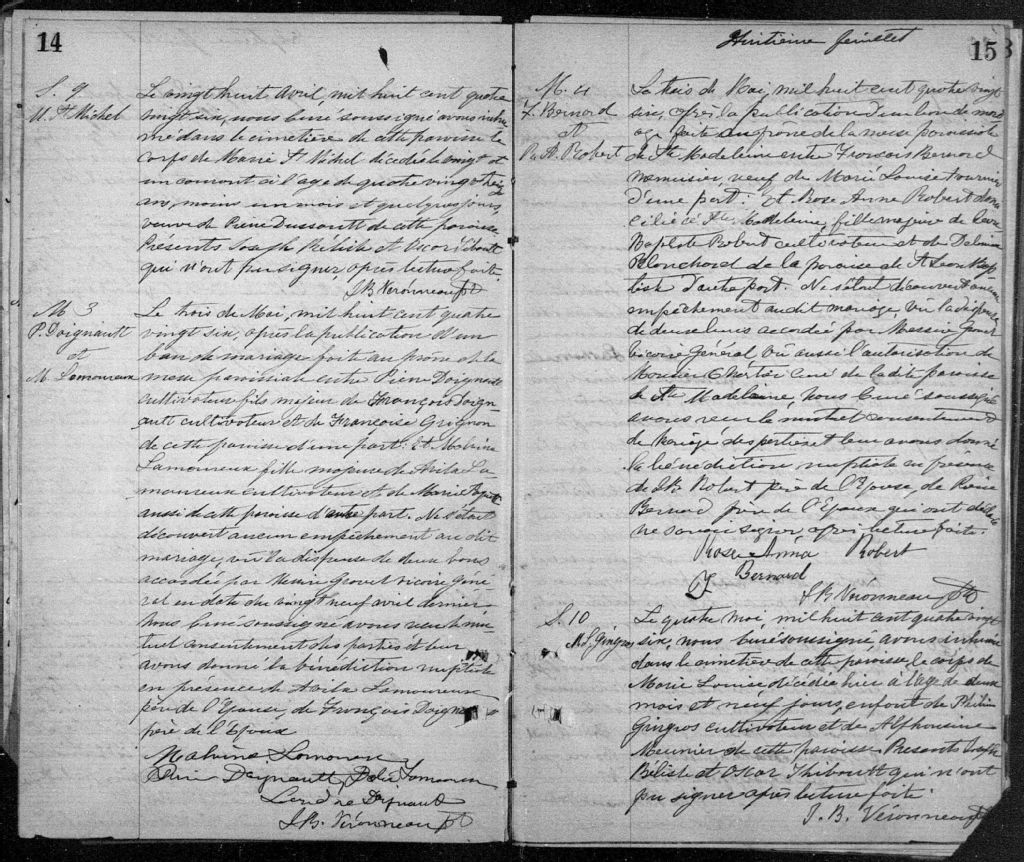 14
S. 9
M. St Michel
Le vingt huit Avril, mil huit cent quatre
vingt six, nous curé soussigné avons inhu
mé dans le cimetière de cette paroisse le
corps de Marie St Michel décédée le vingt et
un courant à l'âge de quatre vingt treize
ans, moins un mois et quelques jours,
veuve de Pierre Dussault de cette paroisse
Présents Joseph Bélisle et Oscar Thibault
qui n'ont pu signer après lecture faite.
J B Véronneau Ptr
M 3
P. Daignault
et
M. Lamoureux
Le trois de Mai, mil huit cent quatre
vingt six, après la publication d'un
ban de mariage fait au prone de la
messe paroissiale entre Pierre Daignault
cultivateur fils majeur de François Daign
ault cultivateur et de Françoise Grignon
de cette paroisse d'une part. Et Malvina
Lamoureux fille mineure de Avila La
moureux cultivateur et de Marie
aussi de cette paroisse d'autre part. Ne s'étant
découvert aucun empêchement au dit
mariage, vu la dispense de deux bans
accordée par Messire Gravel vicaire géné
ral en date du vingt neuf avril dernier,
Nous Curé soussigné avons reçu leur mu
tuel consentement des parties et leur
avons donné la bénédiction nuptiale
en présence de Avila Lamoureux
père de l'Epouse, de François Daignault
père de l'Epoux
Malvina Lamoureux
Daignault, Lamoureux
Daignault
J. B. Véronneau Ptr
Huitième feuillet
15
M. 4
F. Bernard
et
R. A. Robert
Le trois de Mai, mil huit cent quatre vingt
six, après la publication d'un ban de mari
age faite au prone de la messe paroissiale
de Ste Madeleine entre François Bernard
menuisier, veuf de Marie Louise Fournier
d'une part. Et Rose Anna Robert domi
ciliée à Ste Madeleine, fille majeure de Jean
Baptiste Robert cultivateur et de Delima
Blanchard de la paroisse de St Jean Bap
tiste d'autre part. Ne s'étant découvert aucun
empêchement au dit mariage vu la dispense
de deux bans accordée par Messire Gravel
vicaire Général Vu aussi l'autorisation de
Monsieur curé de la dite paroisse
de Ste Madeleine, Nous Curé soussigné
avons reçu le mutuel consentement
de mariage des parties et leur avons donné
la bénédiction nuptiale en présence
de J. B. Robert père de l'Epouse, de Pierre
Bernard frère de l'Epoux qui ont déclaré
ne savoir signer après lecture faite.
Rose Anna Robert
F Bernard
J B Véronneau Ptr
S. 10
M. L. Gingras
Le quatre mai, mil huit cent quatre vingt
six, nous Curé soussigné, avons inhumé
dans le cimetière de cette paroisse, le corps de
Marie Louise décédée hier à l'âge de deux
mois et neuf jours, enfant de Philias
Gingras cultivateur et de Alphonsine
Meunier de cette paroisse Présents Joseph
Bélisle et Oscar Thibault qui n'ont
pu signer après lecture faite.
J. B. Véronneau Ptr